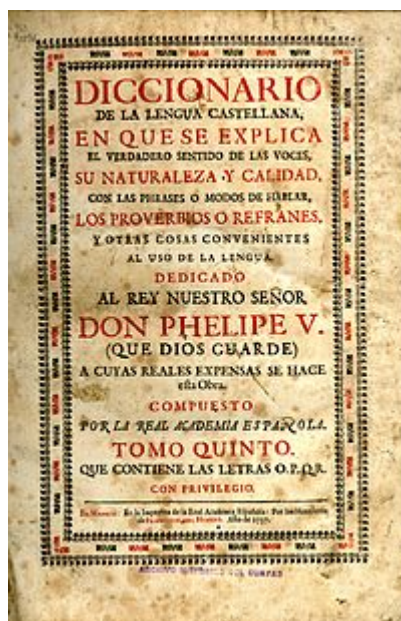 DICCIONARIO
DE LA LENGUA CASTELLANA,
EN QUE SE EXPLICA
EL VERDADERO SENTIDO DE LAS VOCES,
SU NATURALEZA Y CALIDAD,
CON LAS PHRASES O MODOS DE HABLAR,
LOS PROVERBIOS O REFRANES,
Y OTRAS COSAS CONVENIENTES
AL USO DE LA LENGUA.
DEDICADO
AL REY NUESTRO SEÑOR
DON PHELIPE V.
(QUE DIOS GUARDE)
A CUYAS REALES EXPENSAS SE HACE
esta Obra.
COMPUESTO
POR LA REAL ACADEMIA ESPAÑOLA.
TOMO QUINTO.
QUE CONTIENE LAS LETRAS O.P.Q.R.
CON PRIVILEGIO.
En MADRID: En la Imprenta de la Real Academia Española: Por los
de Año de 1737.
ARCHIVO